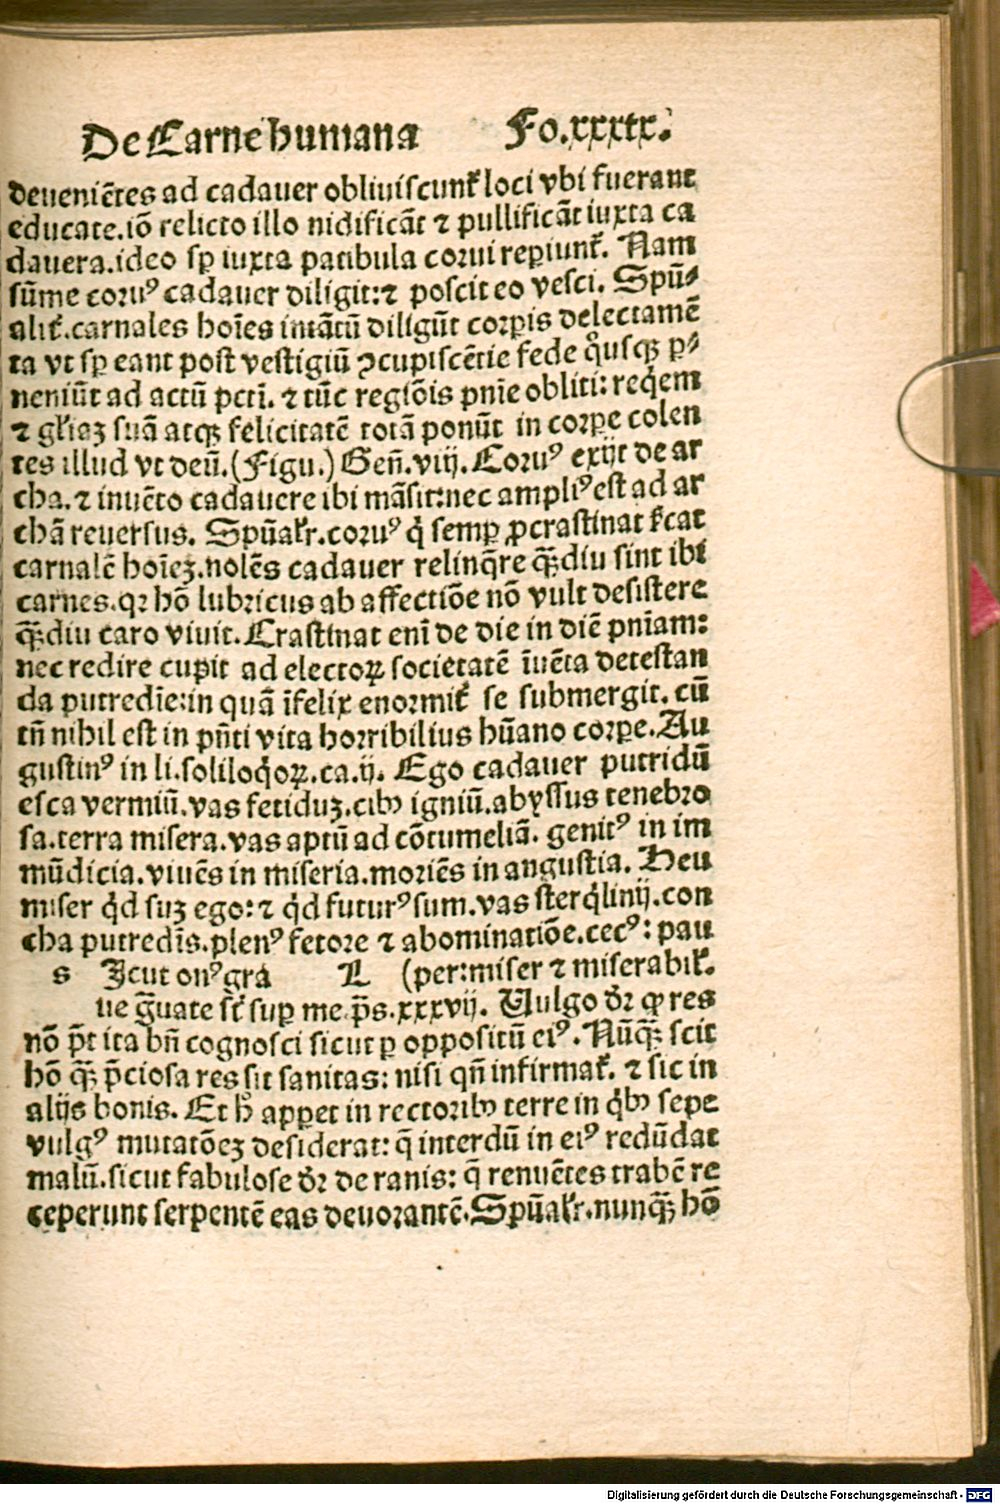 De Carne humana Fo.xxxix.
deueniētes ad cadauer obliuiscunt̄ loci vbi fuerant
educate.iō relicto illo nidificāt ⁊ pullificāt iuxta ca
dauera.ideo sꝑ iuxta patibula corui reꝑiunt̄. Nam
sūme coruꝰ cadauer diligit:⁊ poscit eo vesci. Spūs⸗
alit̄.carnales hoīes intātū diligūt corꝑis delectamē
ta vt sꝑ eant post vestigiū ↄcupiscētie fede q̊usqꝫ ꝑ⸗
neniūt ad actū pctī. ⁊ tūc regiōis pn̄ie obliti: reqͥem
⁊ gl̄iaꝫ suā atqꝫ felicitatē totā ponūt in corꝑe colen
tes illud vt deū.(Figu.) Geñ.viij. Coruꝰ exijt de ar
cha.⁊ inuēto cadauere ibi māsit:nec ampliꝰ est ad ar
chā reuersus. Spūalr̄.coruꝰ qͥ semꝑ ꝓcrastinat k̄cat
carnalē hoīeꝫ.nolēs cadauer relinq̄re qꝫ̄diu sint ibi
carnes.qꝛ hō lubricus ab affectiōe nō vult desistere
qꝫ̄diu caro viuit. Crastinat enī de die in diē pnīam:
nec redire cupit ad electoꝝ societatē īuēta detestan
da putredīe:in quā īfelix enormit̄ se submergit. cū
tñ nihil est in pn̄ti vita horribilius hūano corꝑe. Au
gustinꝰ in li.soliloqͦoꝝ.ca.ij. Ego cadauer putridū
esca vermiū.vas fetiduꝫ.cibꝰ igniū.abyssus tenebro
sa.terra misera.vas aptū ad cōtumeliā. genitꝰ in im
mūdicia.viuēs in miseria.moriēs in angustia. Heu
miser qͥd suꝫ ego:⁊ qͥd futurꝰ sum.vas sterqͥlinij.con
cha putredīs.plenꝰ fetore ⁊ abominatiōe.cecꝰ: pau
s Icut onꝰ gra L (per:miser ⁊ miserabil̄.
ue g̃uate st̄ suꝑ me p̄s.xxxvij. Uulgo dr̄ ꝙ res
nō p̄t ita bñ cognosci sicut ꝑ oppositū eiꝰ. Nūqꝫ̄ scit
hō qꝫ̄ p̄ciosa res sit sanitas: nisi qñ infirmat̄. ⁊ sic in
alijs bonis. Et hͦ apꝑet in rectoribꝰ terre in qͥbꝰ sepe
vulgꝰ mutatōeꝫ desiderat: q̄ interdū in eiꝰ redūdat
malū.sicut fabulose dr̄ de ranis: q̄ renuētes trabē re
ceperunt serpentē eas deuorantē. Spūalr̄.nunqꝫ̄ hō
Digitalisierung gefördert durch die Deutsche Forschungsgemeinschaft - DFG